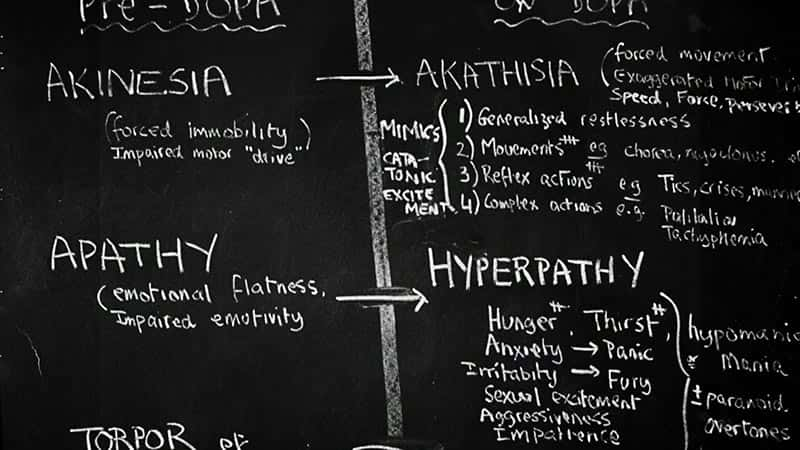 Pre-DOPA
ON DOPA
AKINESIA
(forced immobility)
Impaired motor "drive"
AKATHISIA
(forced movement.
Exaggerated Motor
Speed, Force,
MIMICS
CATA-
TONIC
EXCITE
MENT.
1) Generalized restlessness
2) Movements eg chorea,
3) Reflex actions eg Tics, crises,
4) Complex actions e.g. Palilalia
Tachyphemia
APATHY
(emotional flatness,
Impaired emotivity
HYPERPATHY
Hunger, Thirst,
Anxiety → Panic
→ Fury
Sexual excitement
Aggressiveness
Impatience
Mania
± paranoid
overtones
TORPOR et